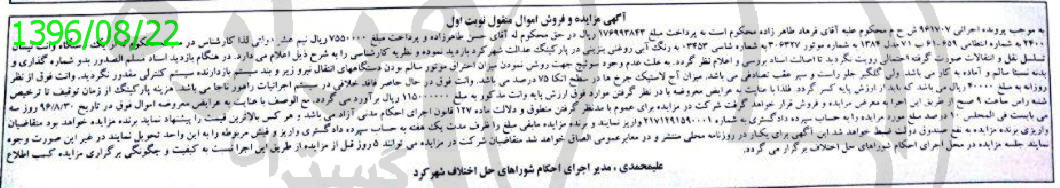 1396/08/22
آگهی مزایده و فروش اموال منقول نوبت اول
به موجب پرونده اجرائی ۹۶۱۷۰۷ ش ح محکوم علیه آقای فرهاد طاهر زاده محکوم است به پرداخت مبلغ ۱۷۶۹۹۳۸۴۳ ریال در حق محکوم له آقای طاهرزاده و پرداخت مبلغ ۷۵۵۰۰۰۰ ریال نیم عشر دولتی لذا کارشناس در یک دستگاه وانت نیسان
۲۴۰۰ به شماره انتظامی مدل ۱۳۸۴ به شماره موتور ۳۰۶۳۲۷ به شماره شاسی ۰۳۴۵۳ به رنگ آبی روغنی بنزینی در پارکینگ عدالت شهرکرد بازدید نموده و نظریه کارشناسی را به شرح ذیل اعلام می دارد. در هنگام بازدید اسناد مسلم الصدور بدو شماره گذاری و
تسلسل نقل و انتقالات صورت گرفته احتمالی رویت نگردید تا اصالت اسناد بررسی و اظهار نظر گردد. به علت عدم وجود سوئیچ جهت روشن نمودن میزان احتراق موتور سالم بودن دستگاههای انتقال نیرو زیر و بند سیستم بازدارنده سیستم کنترلی مقدور نگردید. وانت فوق از نظر
بدنه نسبتا سالم و آماده به کار می باشد. ولی گلگیر جلو راست و سپر عقب تصادفی می باشد. میزان آج لاستیک چرخ ها در سطح اتکا ۷۵ درصد می باشد. وانت فوق در حال حاضر فاقد خلافی در سیستم اجرائیات راهور ناجا می باشد. هزینه پارکینگ از زمان توقیف تا ترخیص
روزانه به مبلغ ۴۰۰۰۰ ریال می باشد که باید از ارزش پایه کسر گردد. فلذا با عنایت به عرایض معروضه با در نظر گرفتن موارد فوق ارزش پایه وانت مذکور به مبلغ ۱۱۵۰۰۰۰۰۰ ریال برآورد می گردد. مع الوصف با عنایت به عرایض معروضه اموال فوق در تاریخ ۹۶/۸/۳۰ روز سه
شنبه راس ساعت ۹ صبح از طریق این اجرا به معرض مزایده و فروش قرار خواهد گرفت شرکت در مزایده برای عموم با مدنظر گرفتن منطوق و دلالت ماده ۱۲۷ قانون اجرای احکام مدنی آزاد می باشد و هر کس بالاترین قیمت را پیشنهاد نماید برنده مزایده خواهد بود متقاضیان
می بایست فی المجلس ۱۰ درصد مبلغ مورد مزایده را به حساب سپرده دادگستری به شماره ۲۱۷۱۲۹۱۵۹۰۰۰۱ واریز نمایند و برنده مزایده مابقی مبلغ را ظرف مدت یک هفته به حساب سپرده دادگستری واریز و فیش مربوطه را به این واحد تحویل نمایند در غیر این صورت وجوه
واریزی برنده مزایده به نفع صندوق دولت ضبط خواهد شد این آگهی برای یکبار در روزنامه محلی منتشر و در معابر عمومی الصاق خواهد شد متقاضیان شرکت در مزایده می توانند ۵ روز قبل از مزایده از طریق این اجرا نسبت به کیفیت و چگونگی برگزاری مزایده کسب اطلاع
نمایند جلسه مزایده در محل اجرای احکام شوراهای حل اختلاف برگزار می گردد.
علیمحمدی ، مدیر اجرای احکام شوراهای حل اختلاف شهرکرد